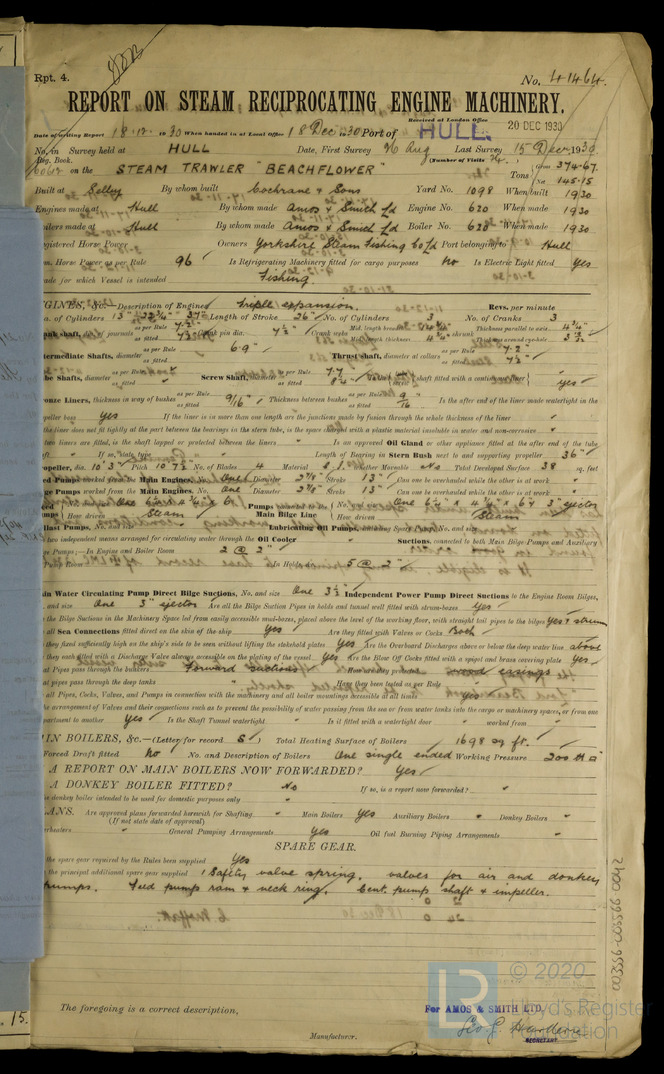 Rpt. 4.
No. 41464.
REPORT ON STEAM RECIPROCATING ENGINE MACHINERY.
Received at London Office
20 DEC 1930
Date of writing Report 18.12.1930 When handed in at Local Office 18 Dec 1930 Port of HULL.
No. in Survey held at HULL Date, First Survey 26 Aug Last Survey 15 Decr 1930
Reg. Book. (Number of Visits
on the STEAM TRAWLER "BEACHFLOWER" Tons Gross 374.67. Net 145.15
Built at Selby By whom built Cochrane & Sons Yard No. 1098 When built 1930
Engines made at Hull By whom made Amos & Smith Ld Engine No. 620 When made 1930
Boilers made at Hull By whom made Amos & Smith Ld Boiler No. 620 When made 1930
Registered Horse Power Owners Yorkshire Steam Fishing Co Ld Port belonging to Hull
Nom. Horse Power as per Rule 96 Is Refrigerating Machinery fitted for cargo purposes No Is Electric Light fitted Yes
Trade for which Vessel is intended Fishing.
ENGINES, &c. Description of Engines Triple expansion. Revs. per minute
No. of Cylinders 13" 22¾" 37" Length of Stroke 26" No. of Cylinders 3 No. of Cranks 3
Crank shaft, dia. of journals as per Rule as fitted Crank pin dia. 7½" Crank webs Mid. length breadth Mid. length thickness 4¾" shrunk Thickness parallel to axis 4¾" Thickness around eye-hole
Intermediate Shafts, diameter as per Rule 6.9" as fitted Thrust shaft, diameter at collars as per Rule 7.2" as fitted 7½"
Tube Shafts, diameter as per Rule as fitted Screw Shaft, diameter as per Rule 7.7 as fitted 8¼" shaft fitted with a continuous liner yes
Bronze Liners, thickness in way of bushes as per Rule as fitted 9/16" Thickness between bushes as per Rule as fitted 9/16 Is the after end of the liner made watertight in the
propeller boss yes If the liner is in more than one length are the junctions made by fusion through the whole thickness of the liner "
If the liner does not fit tightly at the part between the bearings in the stern tube, is the space charged with a plastic material insoluble in water and non-corrosive "
If two liners are fitted, is the shaft lapped or protected between the liners " Is an approved Oil Gland or other appliance fitted at the after end of the tube
If so, state type Length of Bearing in Stern Bush next to and supporting propeller 36"
Propeller, dia. 10' 3" Pitch 10' 7½" No. of Blades 4 Material whether Moveable No Total Developed Surface 38 sq. feet
Feed Pumps worked from the Main Engines, No. One Diameter 2⅞" Stroke 13" Can one be overhauled while the other is at work "
Bilge Pumps worked from the Main Engines, No. one Diameter 2⅞" Stroke 13" Can one be overhauled while the other is at work "
Pumps connected to the Main Bilge Line No. and size One 6½" x 4¼" x 6 & 3" ejector
How driven Steam How driven Steam
Ballast Pumps, No. and size Lubricating Oil Pumps, including Spare Pump, No. and size
Are two independent means arranged for circulating water through the Oil Cooler Suctions, connected to both Main Bilge Pumps and Auxiliary
Bilge Pumps;—In Engine and Boiler Room 2 @ 2"
In Holds, &c. 5 @ 2"
Main Water Circulating Pump Direct Bilge Suctions, No. and size One 3½ Independent Power Pump Direct Suctions to the Engine Room Bilges,
No. and size One 3" ejector Are all the Bilge Suction Pipes in holds and tunnel well fitted with strum-boxes Yes
Are the Bilge Suctions in the Machinery Space led from easily accessible mud-boxes, placed above the level of the working floor, with straight tail pipes to the bilges yes & strum
Are all Sea Connections fitted direct on the skin of the ship Yes Are they fitted with Valves or Cocks Both
Are they fixed sufficiently high on the ship's side to be seen without lifting the stokehold plates Yes Are the Overboard Discharges above or below the deep water line above
Are they each fitted with a Discharge Valve always accessible on the plating of the vessel Yes Are the Blow Off Cocks fitted with a spigot and brass covering plate Yes
What Pipes pass through the bunkers Forward suctions How are they protected wood casings
What pipes pass through the deep tanks " Have they been tested as per Rule "
Are all Pipes, Cocks, Valves, and Pumps in connection with the machinery and all boiler mountings accessible at all times Yes
Is the arrangement of Valves and their connections such as to prevent the possibility of water passing from the sea or from water tanks into the cargo or machinery spaces, or from one
compartment to another Yes Is the Shaft Tunnel watertight " Is it fitted with a watertight door " worked from "
MAIN BOILERS, &c.—(Letter for record S) Total Heating Surface of Boilers 1698 sq ft.
Is Forced Draft fitted No No. and Description of Boilers One single ended Working Pressure 200 lb
IS A REPORT ON MAIN BOILERS NOW FORWARDED? Yes
IS A DONKEY BOILER FITTED? No If so, is a report now forwarded? "
Is the donkey boiler intended to be used for domestic purposes only "
PLANS. Are approved plans forwarded herewith for Shafting " Main Boilers Yes Auxiliary Boilers " Donkey Boilers "
(If not state date of approval)
Superheaters " General Pumping Arrangements Yes Oil fuel Burning Piping Arrangements "
SPARE GEAR.
Has the spare gear required by the Rules been supplied Yes
State the principal additional spare gear supplied 1 Safety valve spring, valves for air and donkey
pumps. Feed pump ram & neck ring. Cent. pump shaft & impeller.
The foregoing is a correct description,
For AMOS & SMITH LTD.
SECRETARY
Manufacturer.
003556-003566-0042
LR
© 2020
Lloyd's Register
Foundation
15.